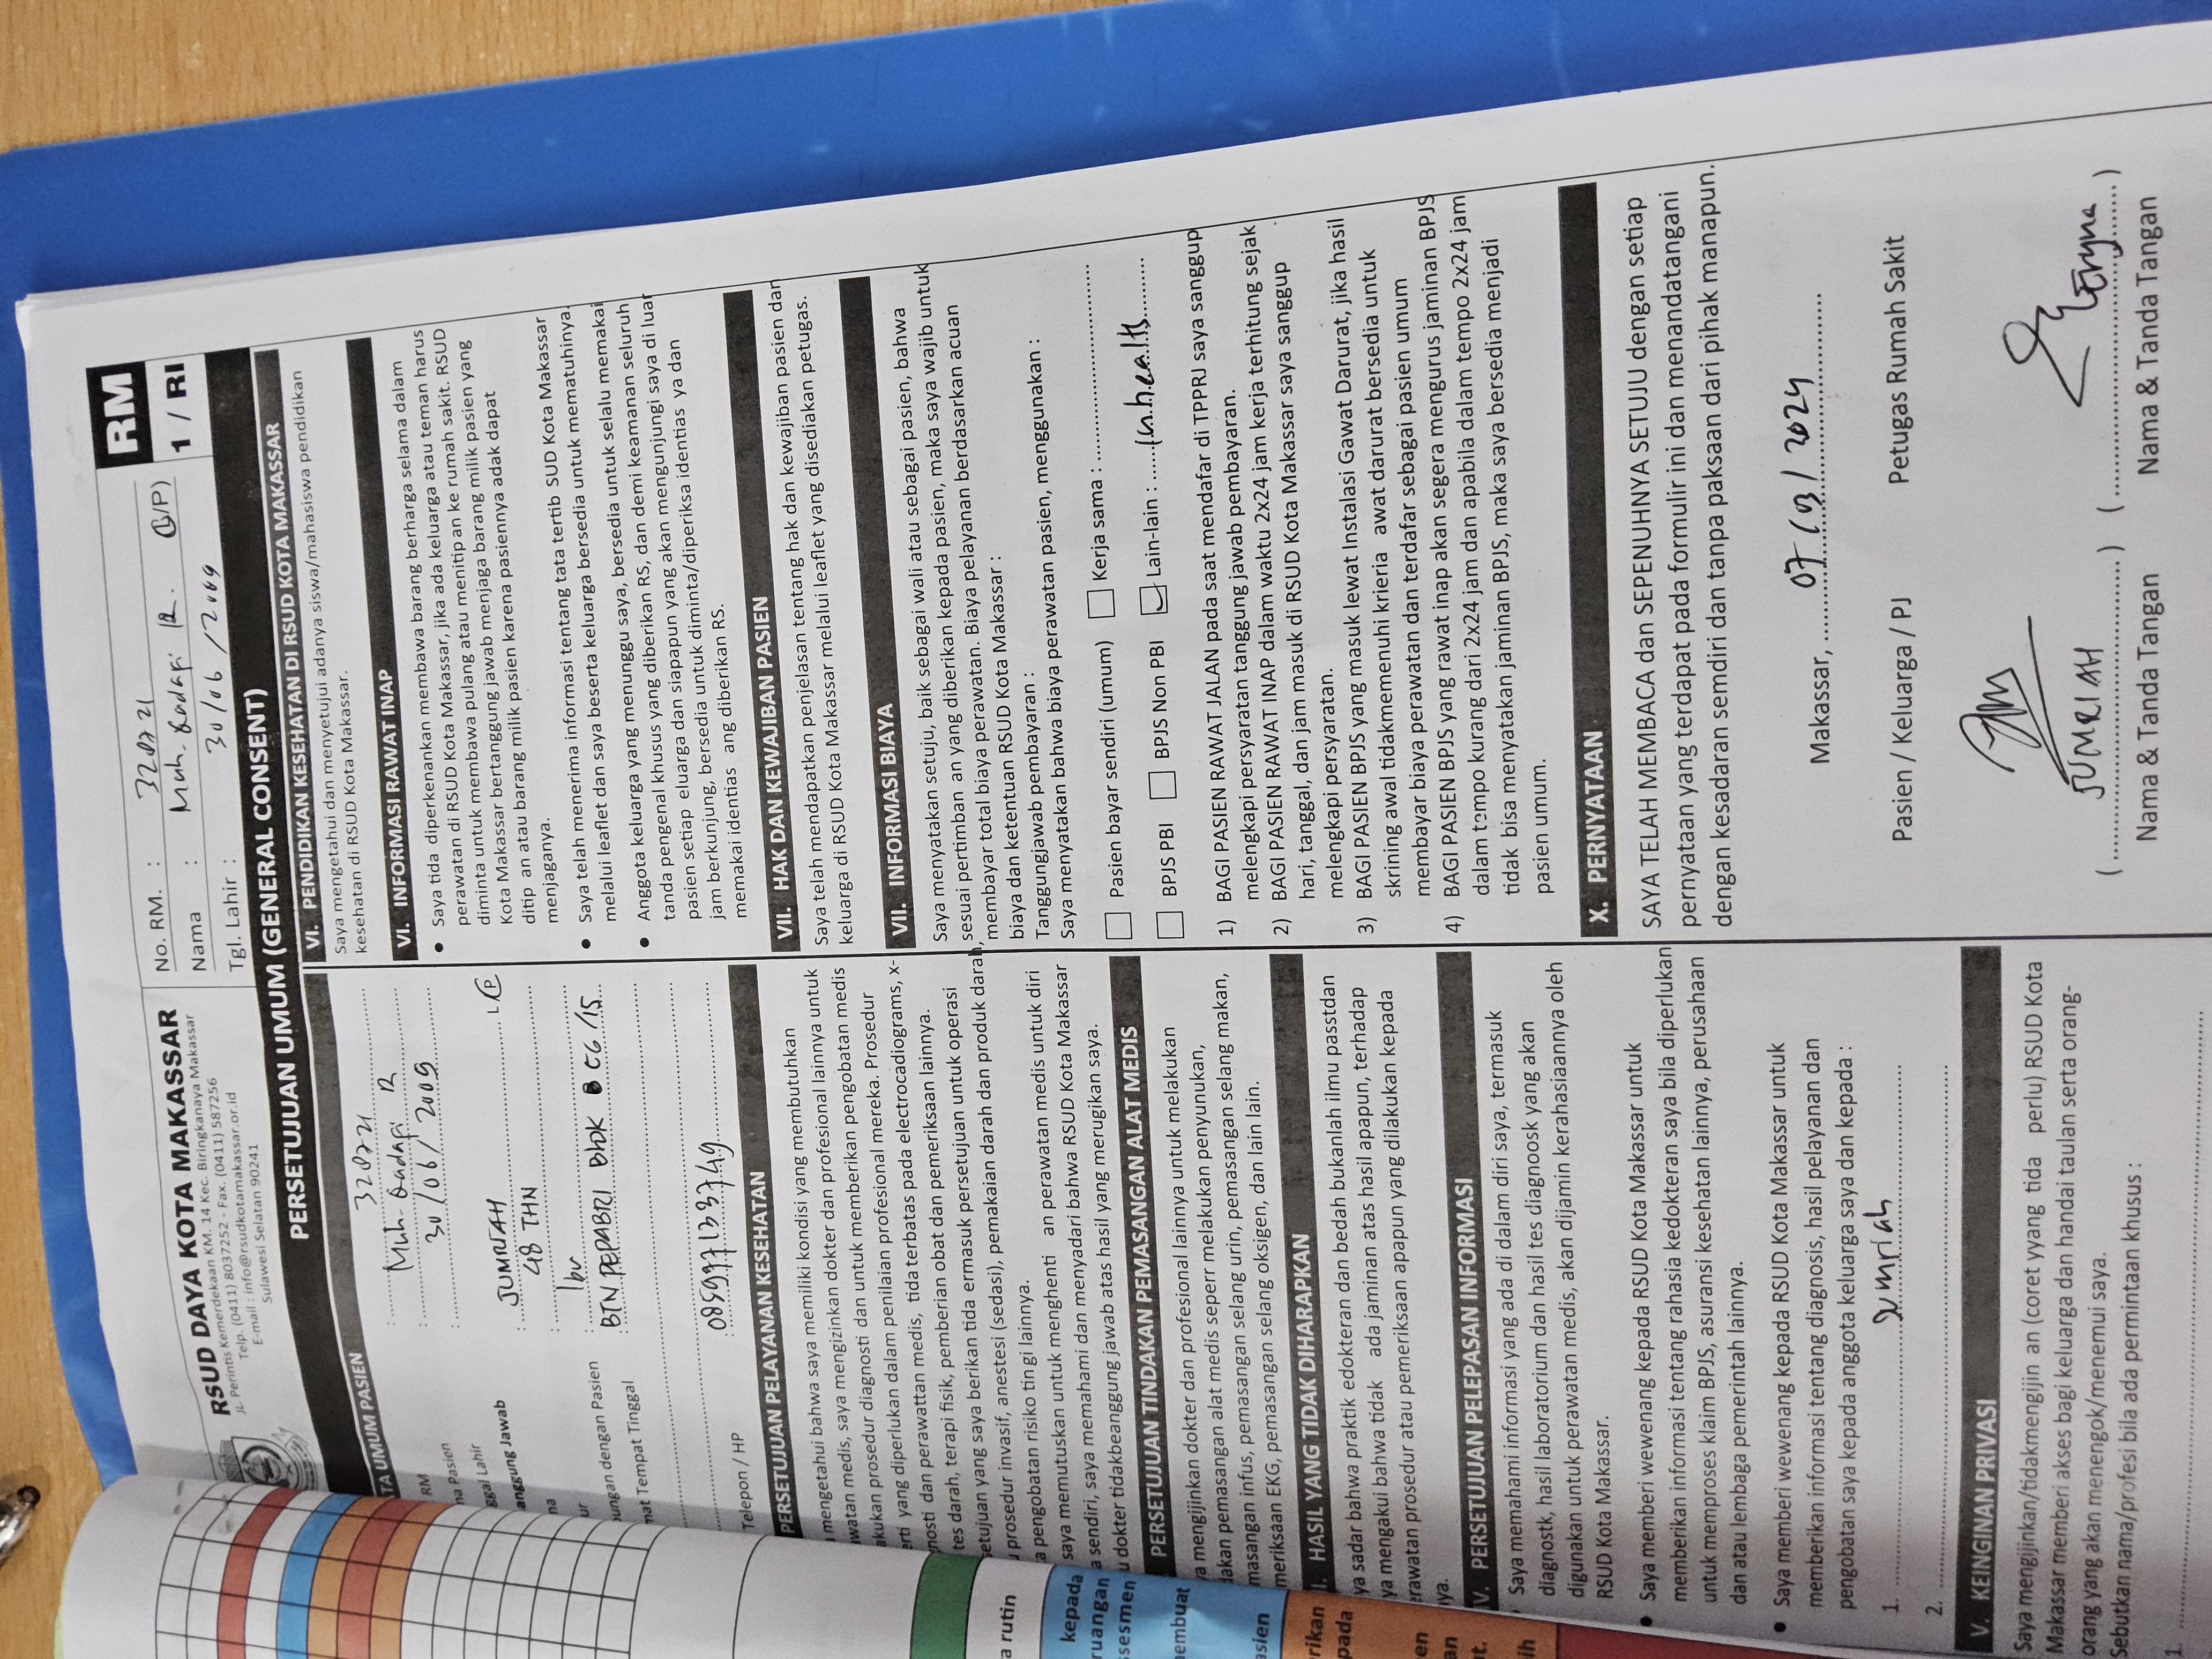 RSUD DAYA KOTA MAKASSAR
JL. Perintis Kemerdekaan KM. 14 Kec. Biringkanaya Makassar
Telp. (0411) 8037252 - Fax. (0411) 587256
E-mail : info@rsudkotamakassar.or.id
Sulawesi Selatan 90241
No. RM. :
Nama : Muh. (L/P)
Tgl. Lahir : 30/06/2009
RM
1 / RI
PERSETUJUAN UMUM (GENERAL CONSENT)
TA UMUM PASIEN
RM :
na Pasien : Muh.
ggal Lahir : 30/06/2009
anggung Jawab
na : JUMRIAH L/P
ur : 48 THN
ungan dengan Pasien : Ibu
mat Tempat Tinggal : BTN PEPABRI Blok C6/15
Telepon / HP : 085997133749
PERSETUJUAN PELAYANAN KESEHATAN
mengetahui bahwa saya memiliki kondisi yang membutuhkan
watan medis, saya mengizinkan dokter dan profesional lainnya untuk
akukan prosedur diagnosti dan untuk memberikan pengobatan medis
erti yang diperlukan dalam penilaian profesional mereka. Prosedur
nosti dan perawattan medis, tida terbatas pada electrocadiograms, x-
tes darah, terapi fisik, pemberian obat dan pemeriksaan lainnya.
setujuan yang saya berikan tida ermasuk persetujuan untuk operasi
prosedur invasif, anestesi (sedasi), pemakaian darah dan produk darah,
a pengobatan risiko tin gi lainnya.
saya memutuskan untuk menghenti an perawatan medis untuk diri
a sendiri, saya memahami dan menyadari bahwa RSUD Kota Makassar
u dokter tidakbeanggung jawab atas hasil yang merugikan saya.
PERSETUJUAN TINDAKAN PEMASANGAN ALAT MEDIS
ya mengijinkan dokter dan profesional lainnya untuk melakukan
dakan pemasangan alat medis seperr melakukan penyunukan,
masangan infus, pemasangan selang urin, pemasangan selang makan,
meriksaan EKG, pemasangan selang oksigen, dan lain lain.
I. HASIL YANG TIDAK DIHARAPKAN
ya sadar bahwa praktik edokteran dan bedah bukanlah ilmu passtdan
ya mengakui bahwa tidak ada jaminan atas hasil apapun, terhadap
erawatan prosedur atau pemeriksaan apapun yang dilakukan kepada
ya.
V. PERSETUJUAN PELEPASAN INFORMASI
Saya memahami informasi yang ada di dalam diri saya, termasuk
diagnostk, hasil laboratorium dan hasil tes diagnoosk yang akan
digunakan untuk perawatan medis, akan dijamin kerahasiaannya oleh
RSUD Kota Makassar.
• Saya memberi wewenang kepada RSUD Kota Makassar untuk
memberikan informasi tentang rahasia kedokteran saya bila diperlukan
untuk memproses klaim BPJS, asuransi kesehatan lainnya, perusahaan
dan atau lembaga pemerintah lainnya.
• Saya memberi wewenang kepada RSUD Kota Makassar untuk
memberikan informasi tentang diagnosis, hasil pelayanan dan
pengobatan saya kepada anggota keluarga saya dan kepada :
1. Jumriah
2.
V. KEINGINAN PRIVASI
Saya mengijinkan/tidakmengijin an (coret yyang tida perlu) RSUD Kota
Makassar memberi akses bagi keluarga dan handai taulan serta orang-
orang yang akan menengok/menemui saya.
Sebutkan nama/profesi bila ada permintaan khusus :
1.
VI. PENDIDIKAN KESEHATAN DI RSUD KOTA MAKASSAR
Saya mengetahui dan menyetujui adanya siswa/mahasiswa pendidikan
kesehatan di RSUD Kota Makassar.
VI. INFORMASI RAWAT INAP
• Saya tida diperkenankan membawa barang berharga selama dalam
perawatan di RSUD Kota Makassar, jika ada keluarga atau teman harus
diminta untuk membawa pulang atau menitip an ke rumah sakit. RSUD
Kota Makassar bertanggung jawab menjaga barang milik pasien yang
ditip an atau barang milik pasien karena pasiennya adak dapat
menjaganya.
• Saya telah menerima informasi tentang tata tertib SUD Kota Makassar
melalui leaflet dan saya beserta keluarga bersedia untuk mematuhinya.
• Anggota keluarga yang menunggu saya, bersedia untuk selalu memakai
tanda pengenal khusus yang diberikan RS, dan demi keamanan seluruh
pasien setiap eluarga dan siapapun yang akan mengunjungi saya di luar
jam berkunjung, bersedia untuk diminta/diperiksa identias ya dan
memakai identias ang diberikan RS.
VII. HAK DAN KEWAJIBAN PASIEN
Saya telah mendapatkan penjelasan tentang hak dan kewajiban pasien dan
keluarga di RSUD Kota Makassar melalui leaflet yang disediakan petugas.
VII. INFORMASI BIAYA
Saya menyatakan setuju, baik sebagai wali atau sebagai pasien, bahwa
sesuai pertimban an yang diberikan kepada pasien, maka saya wajib untuk
membayar total biaya perawatan. Biaya pelayanan berdasarkan acuan
biaya dan ketentuan RSUD Kota Makassar :
Tanggungjawab pembayaran :
Saya menyatakan bahwa biaya perawatan pasien, menggunakan :
Pasien bayar sendiri (umum) Kerja sama :
BPJS PBI BPJS Non PBI Lain-lain : Inhealth
1) BAGI PASIEN RAWAT JALAN pada saat mendafar di TPPRJ saya sanggup
melengkapi persyaratan tanggung jawab pembayaran.
2) BAGI PASIEN RAWAT INAP dalam waktu 2x24 jam kerja terhitung sejak
hari, tanggal, dan jam masuk di RSUD Kota Makassar saya sanggup
melengkapi persyaratan.
3) BAGI PASIEN BPJS yang masuk lewat Instalasi Gawat Darurat, jika hasil
skrining awal tidakmemenuhi krieria awat darurat bersedia untuk
membayar biaya perawatan dan terdafar sebagai pasien umum
4) BAGI PASIEN BPJS yang rawat inap akan segera mengurus jaminan BPJS
dalam tempo kurang dari 2x24 jam dan apabila dalam tempo 2x24 jam
tidak bisa menyatakan jaminan BPJS, maka saya bersedia menjadi
pasien umum.
X. PERNYATAAN
SAYA TELAH MEMBACA dan SEPENUHNYA SETUJU dengan setiap
pernyataan yang terdapat pada formulir ini dan menandatangani
dengan kesadaran semdiri dan tanpa paksaan dari pihak manapun.
Makassar, 07/03/2024
Pasien / Keluarga / PJ Petugas Rumah Sakit
(JUMRIAH) (Eryna)
Nama & Tanda Tangan Nama & Tanda Tangan
a rutin
kepada
ruangan
sesmen
embuat
asien
rikan
pada
en
an
t.
ih